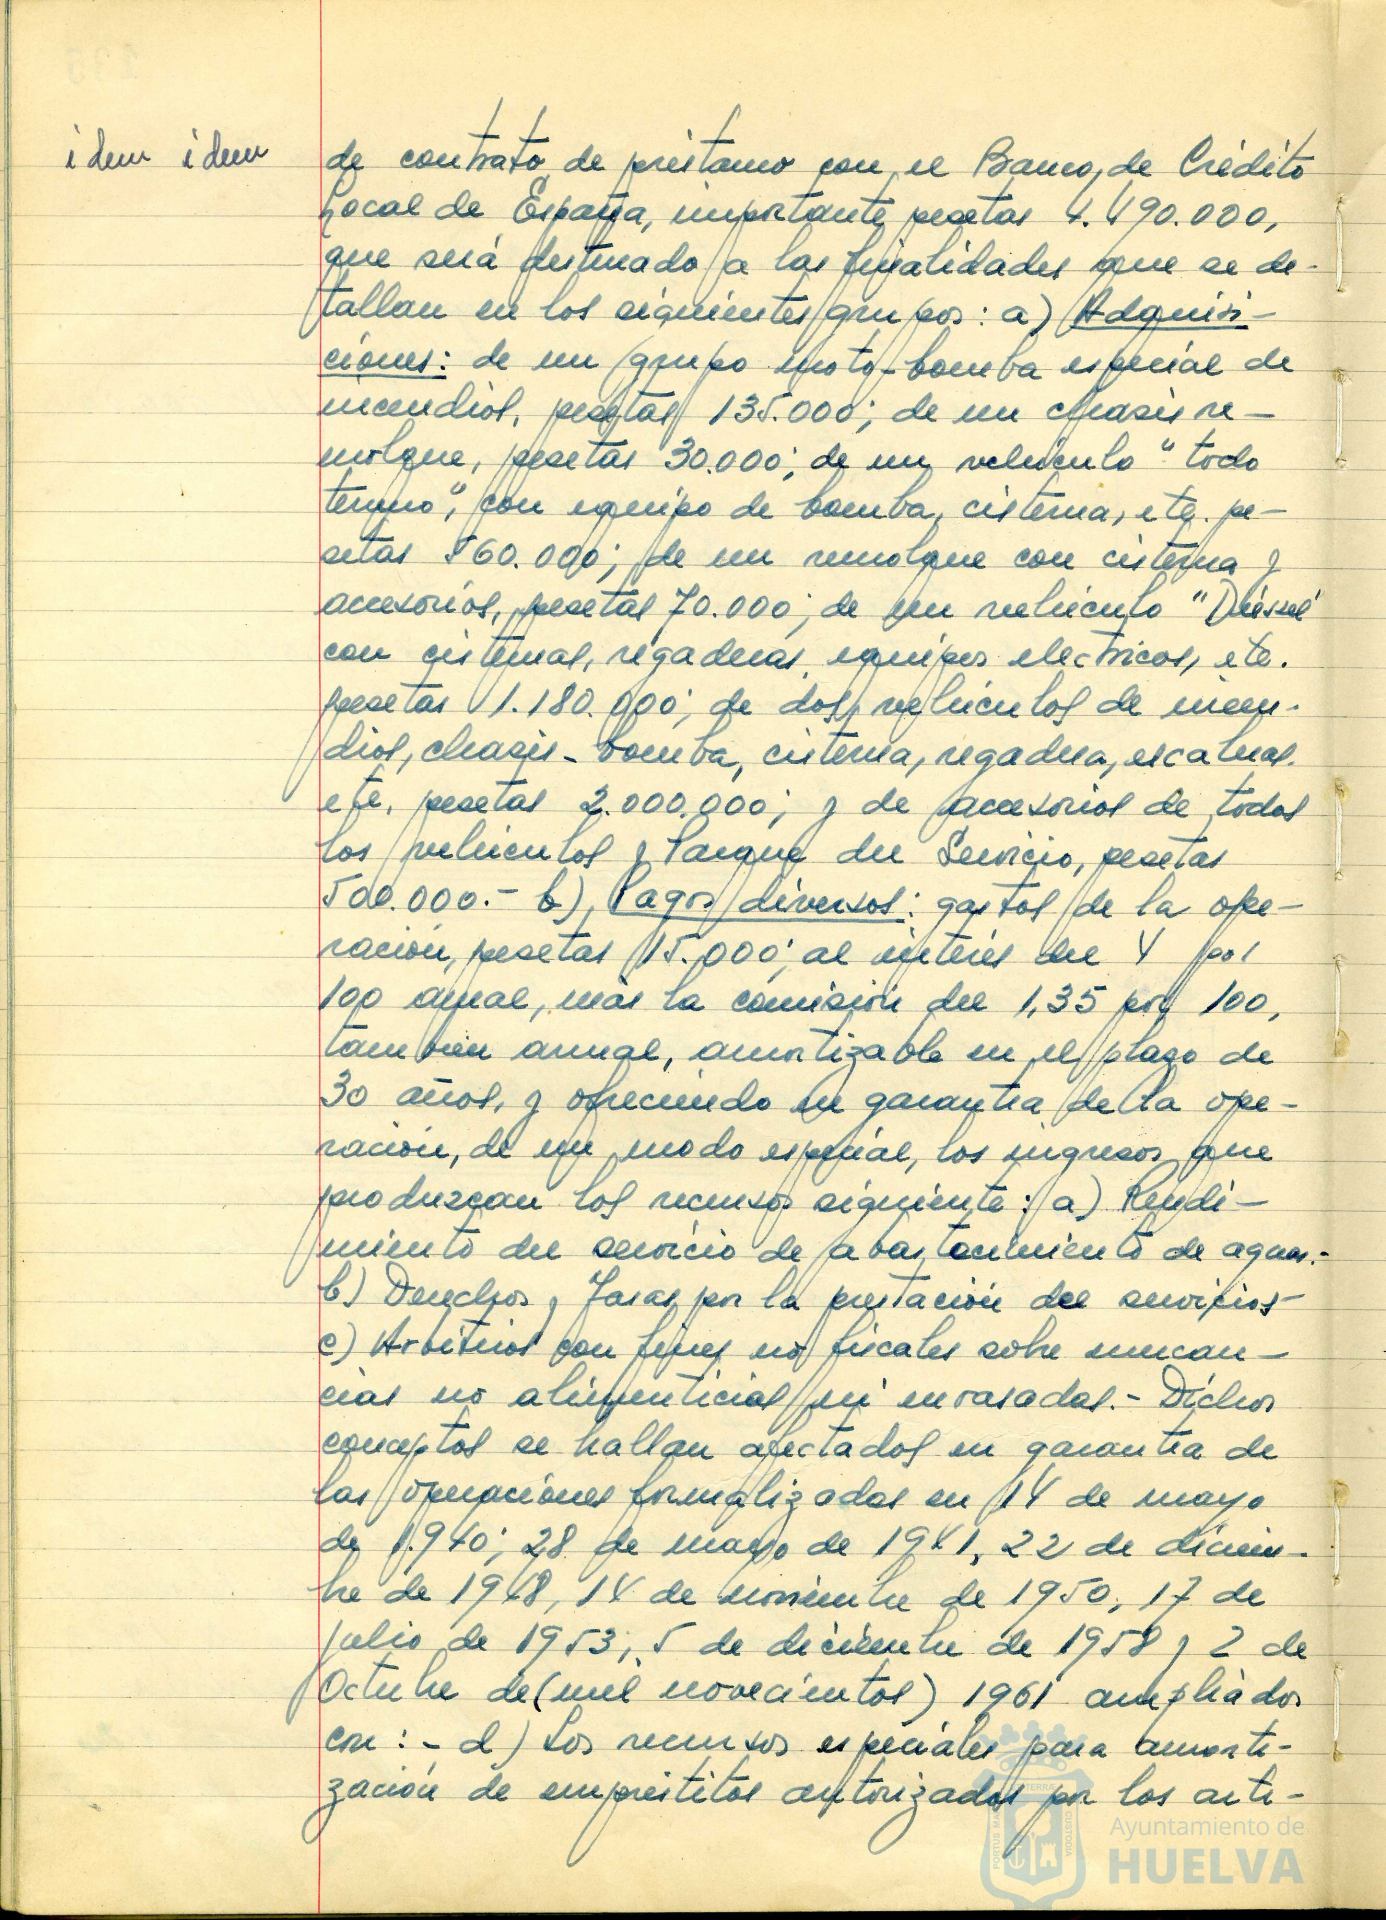 idem idem
de contrato de préstamo con el Banco de Crédito
Local de España, importante pesetas 4.490.000,
que será destinado a las finalidades que se de-
tallan en los siguientes grupos: a) Adquisi-
ciones: de un grupo moto-bomba especial de
incendios, pesetas 135.000; de un chasis re-
molque, pesetas 30.000; de un vehículo "todo
terreno", con equipo de bomba, cisterna, etc. pe-
setas 560.000; de un remolque con cisterna y
accesorios, pesetas 70.000; de un vehículo "Diéssel"
con cisternas, regaderas, equipos electricos, etc.
pesetas 1.180.000; de dos vehículos de incen-
dios, chasis-bomba, cisterna, regadera, escaleras.
etc, pesetas 2.000.000; y de accesorios de todos
los vehículos y Parque del Servicio, pesetas
500.000.- b), Pagos diversos: gastos de la ope-
ración, pesetas 15.000; al interés del 4 por
100 anual, más la comisión del 1,35 por 100,
tambien anual, amortizable en el plazo de
30 años, y ofreciendo en garantia de la ope-
ración, de un modo especial, los ingresos que
produzcan los recursos siguiente: a) Rendi-
miento del servicio de abastecimiento de aguas.-
b) Derechos y Tasas por la prestación del servicios-
c) Arbitrios con fines no fiscales sobre mercan-
cias no alimenticias ni envasadas.- Dichos
conceptos se hallan afectados en garantia de
las operaciones formalizadas en 14 de mayo
de 1.940; 28 de mayo de 1941, 22 de diciem-
bre de 1948, 14 de noviembre de 1950, 17 de
julio de 1953, 5 de diciembre de 1958 y 2 de
Octubre de (mil novecientos) 1961 ampliados
con: - d) Los recursos especiales para amorti-
zación de empréstitos autorizados por los arti-
PORTUS MARIS
TERRAE
CUSTODIA
Ayuntamiento de
HUELVA